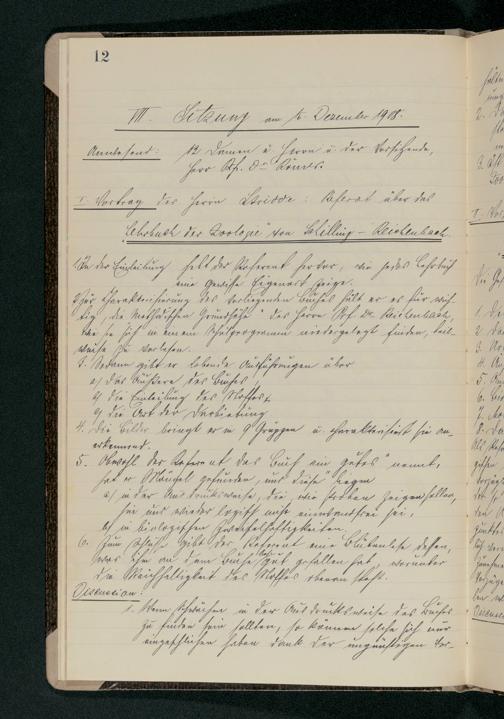 12
VIII. Sitzung am 5. Dezember 1908.
Anwesend: 12 Damen u. Herrn u. der Vorsitzende,
Herr Prf. Dr.
I. Vortrag des Herrn : Referat über das
„Lehrbuch der Zoologie“ von Schilling – Reichenbach.
In der Einleitung hebt der Referent hervor, wie jedes Lehrbuch
eine gewisse Eigenart zeige.
Zur Charakterisierung des vorliegenden Buches hält er es für wich-
tig, die methodischen Grundsätze des Herrn Prf. Dr. Reichenbach,
wie sie sich in einem Schulprogramm niedergelegt finden, teil-
weise zu verlesen.
3. Sodann gibt er lobende Ausführungen über
a) das Äußere des Buches,
b) die Einteilung des Stoffes,
c) die Art der Darbietung
4. Die Bilder bringt er in 9 Gruppen u. charakterisiert sie an-
erkennend.
5. Obwohl der Referent das Buch ein „gutes“ nennt,
hat er Mängel gefunden, und diese liegen
a) in der Ausdrucksweise, die, wie Proben zeigen sollen,
hin und wieder logisch nicht einwandfrei sei,
b) in biologischen Zweifelhaftigkeiten.
6. Zum Schluß gibt der Referent eine Blütenlese dessen,
was ihm an dem Buche gut gefallen hat, worunter
die Reichhaltigkeit des Stoffes obenan steht.
Discussion:
1. Wenn Schwächen in der Ausdrucksweise des Buches
zu finden sein sollten, so können solche sich nur
eingeschlichen haben dank der ungünstigen Vor-